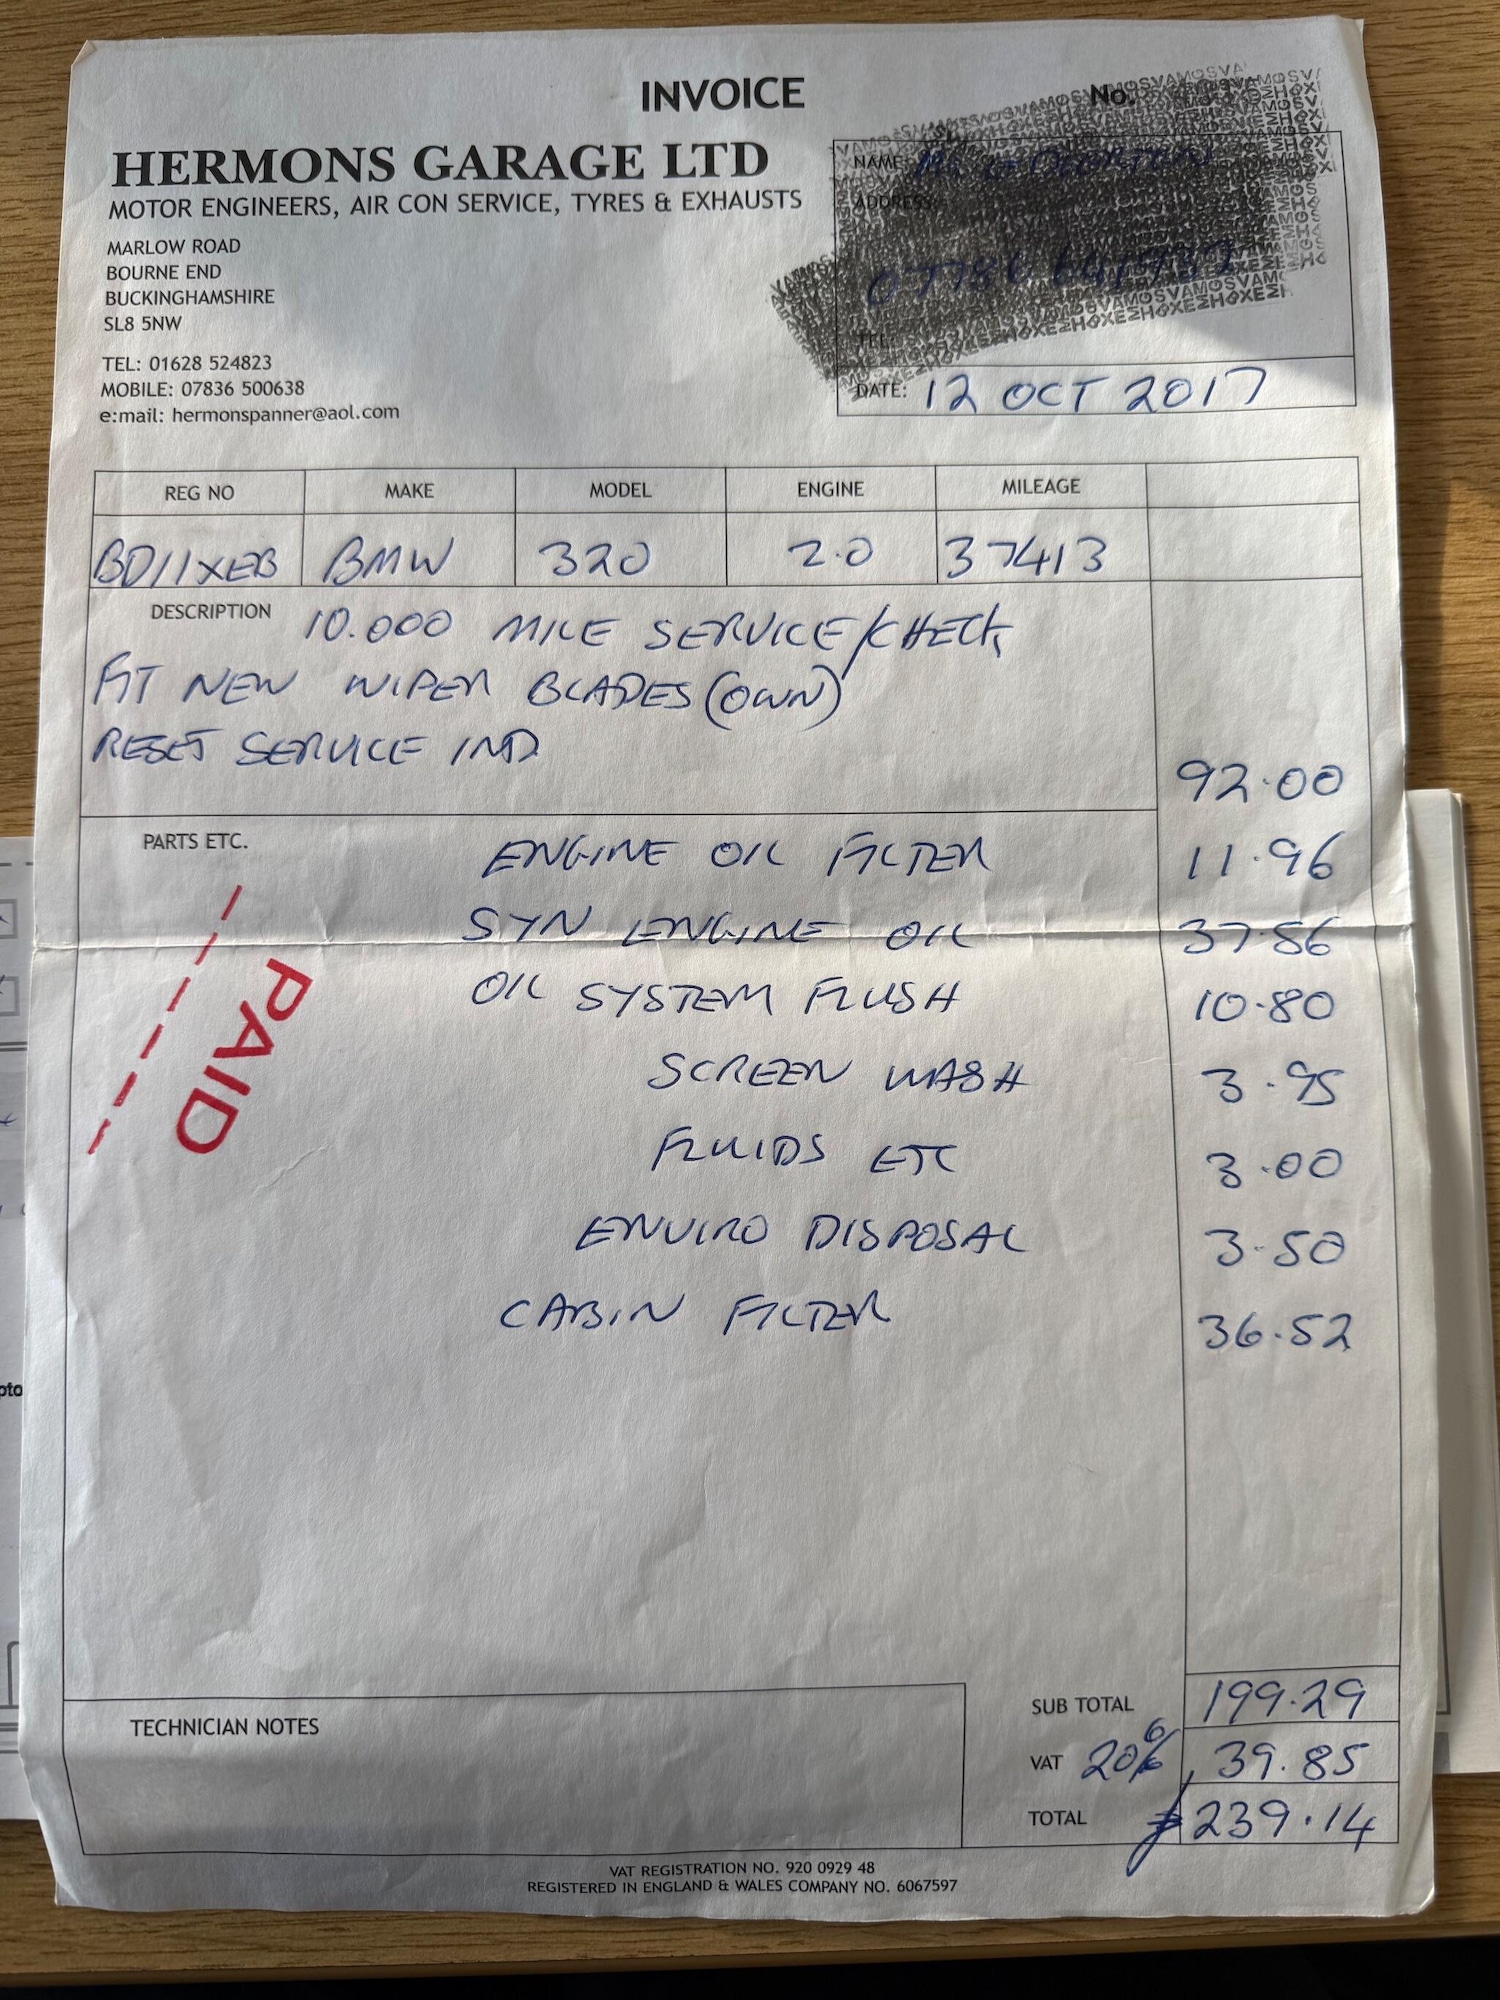 INVOICE
No.
HERMONS GARAGE LTD
MOTOR ENGINEERS, AIR CON SERVICE, TYRES & EXHAUSTS
MARLOW ROAD
BOURNE END
BUCKINGHAMSHIRE
SL8 5NW
TEL: 01628 524823
MOBILE: 07836 500638
e:mail: hermonspanner@aol.com
NAME:
ADDRESS:
TEL:
DATE: 12 OCT 2017
REG NO MAKE MODEL ENGINE MILEAGE
BD11XEB BMW 320 2.0 37413
DESCRIPTION 10.000 MILE SERVICE/CHECK
FIT NEW WIPER BLADES (OWN)
RESET SERVICE IND
92.00
PARTS ETC. ENGINE OIL FILTER 11.96
SYN ENGINE OIL 37.56
OIL SYSTEM FLUSH 10.80
SCREEN WASH 3.95
FLUIDS ETC 3.00
ENVIRO DISPOSAL 3.50
CABIN FILTER 36.52
PAID
TECHNICIAN NOTES
SUB TOTAL 199.29
VAT 20% 39.85
TOTAL £239.14
VAT REGISTRATION NO. 920 0929 48
REGISTERED IN ENGLAND & WALES COMPANY NO. 6067597